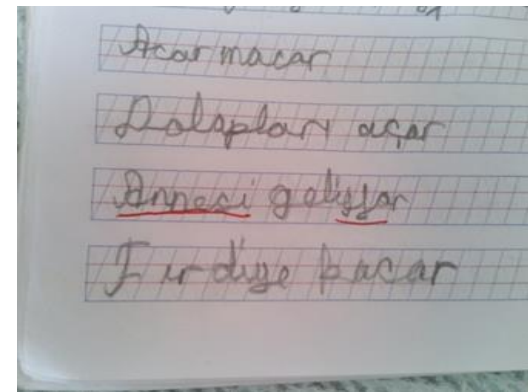 Acar macar
Dolapları açar
Annesi gelissar
Fır diye kaçar